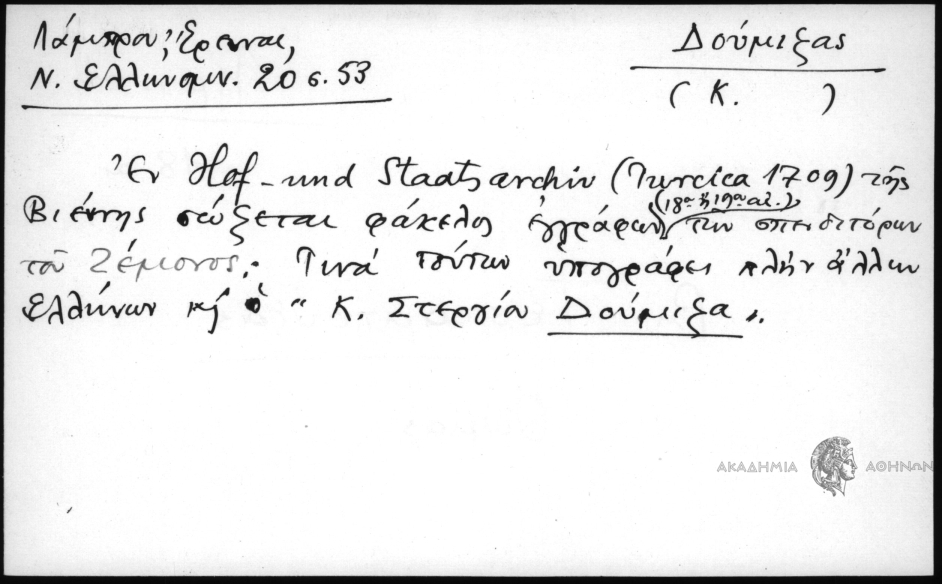 Λάμπρου, Ἔρευναι,
Ν. Ελληνομν. 20 σ. 53
Δούμιζας
( Κ. )
Ἐν Hof- und Staatsarchiv (Turcica 1709) τῆς
Βιέννης σώζεται φάκελος ἐγγράφων (18ου ἢ 19ου αἰ.) τῶν σπεδιτόρων
τοῦ Ζέμονος. Τινὰ τούτων υπογράφει πλὴν ἄλλων
Ελλήνων κ ὁ " Κ. Στεργίου Δούμιζα ".
ΑΚΑΔΗΜΙΑ ΑΘΗΝΩΝ